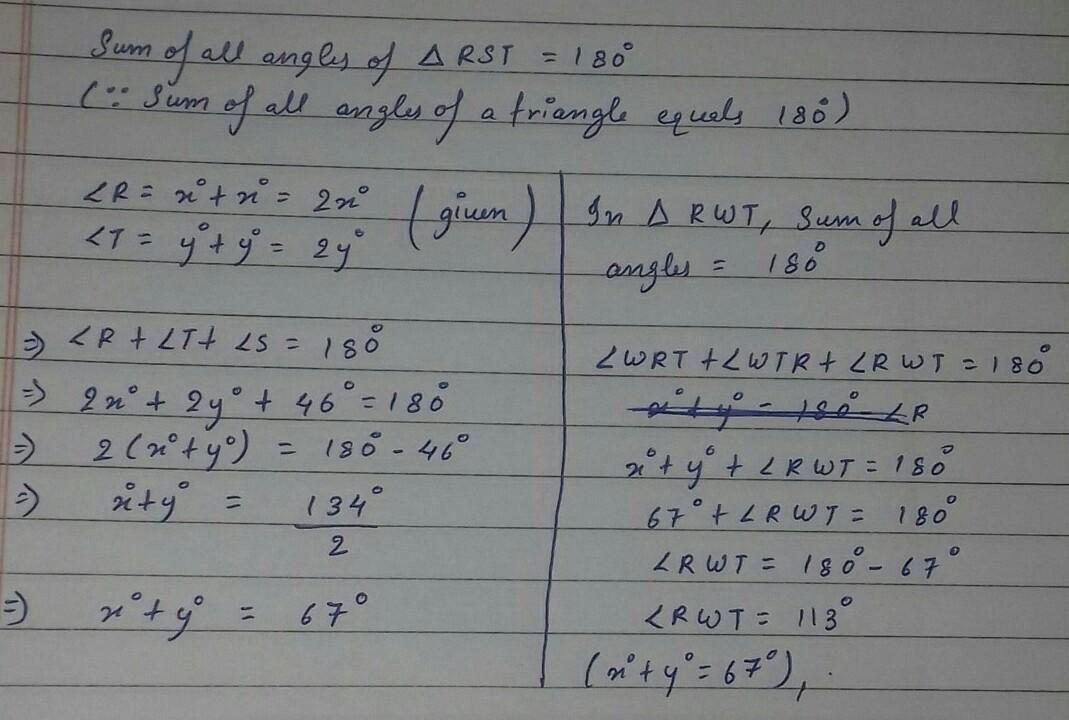 Sum of all angles of Δ RST = 180°
(∵ Sum of all angles of a triangle equals 180°)
∠R = x° + x° = 2x° (given)
∠T = y° + y° = 2y°
⇒ ∠R + ∠T + ∠S = 180°
⇒ 2x° + 2y° + 46° = 180°
⇒ 2(x° + y°) = 180° - 46°
⇒ x° + y° = 134°
2
⇒ x° + y° = 67°
In Δ RWT, Sum of all
angles = 180°
∠WRT + ∠WTR + ∠RWT = 180°
x° + y° = 180° - ∠R
x° + y° + ∠RWT = 180°
67° + ∠RWT = 180°
∠RWT = 180° - 67°
∠RWT = 113°
(x° + y° = 67°),